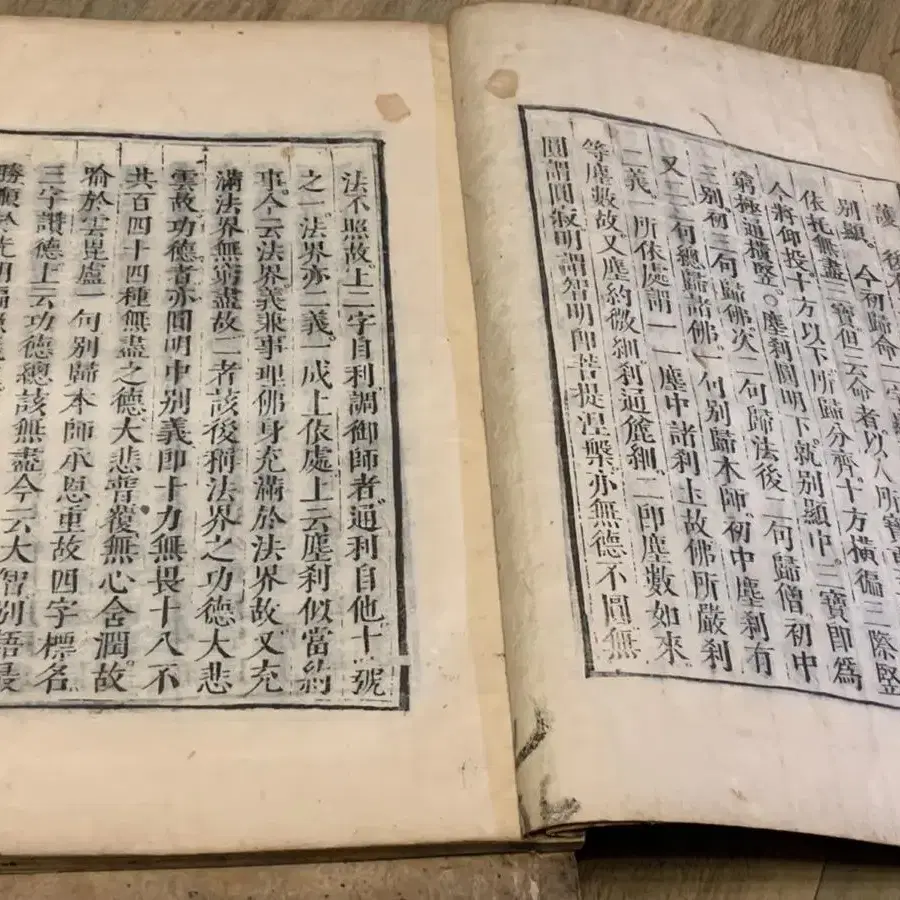 護 後
別顯。今初歸命二字
依托無盡三寶但云命者以人所寶
今將仰投十方以下所歸分齊十方橫徧三際竪
窮極通橫竪。塵刹圓明下就別顯中三寶卽爲
三別初三句歸佛次二句歸法後二句歸僧初中
又二二句總歸諸佛一句別歸本師初中塵刹有
二義一所依處謂一一塵中諸刹土故佛所嚴刹
等塵數故又塵約微細刹通麁細二卽塵數如來
圓謂圓寂明謂智明卽菩提涅槃亦無德不圓無
法不照故上二字自利調御師者通利自他十號
之一法界亦二義一成上依處上云塵刹似當約
事今云法界義兼事理佛身充滿於法界故又充
滿法界無窮盡故二者該後稱法界之功德大悲
雲故功德者亦圓明中別義卽十力無畏十八不
共百四十四種無盡之德大悲普覆無心含潤故
喻於雲毘盧一句別歸本師承恩重故四字標名
三字讚德上云功德總該無盡今云大智別語最
勝顯於光明徧